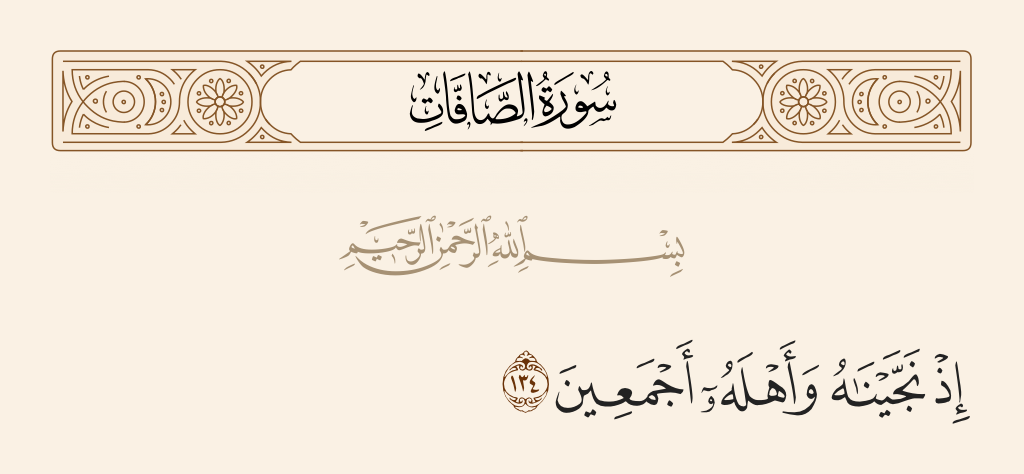 سُورَةُ الصَّافَّاتِ
بِسْمِ ٱللَّهِ ٱلرَّحْمَٰنِ ٱلرَّحِيمِ
إِذْ نَجَّيْنَٰهُ وَأَهْلَهُۥٓ أَجْمَعِينَ ١٣٤